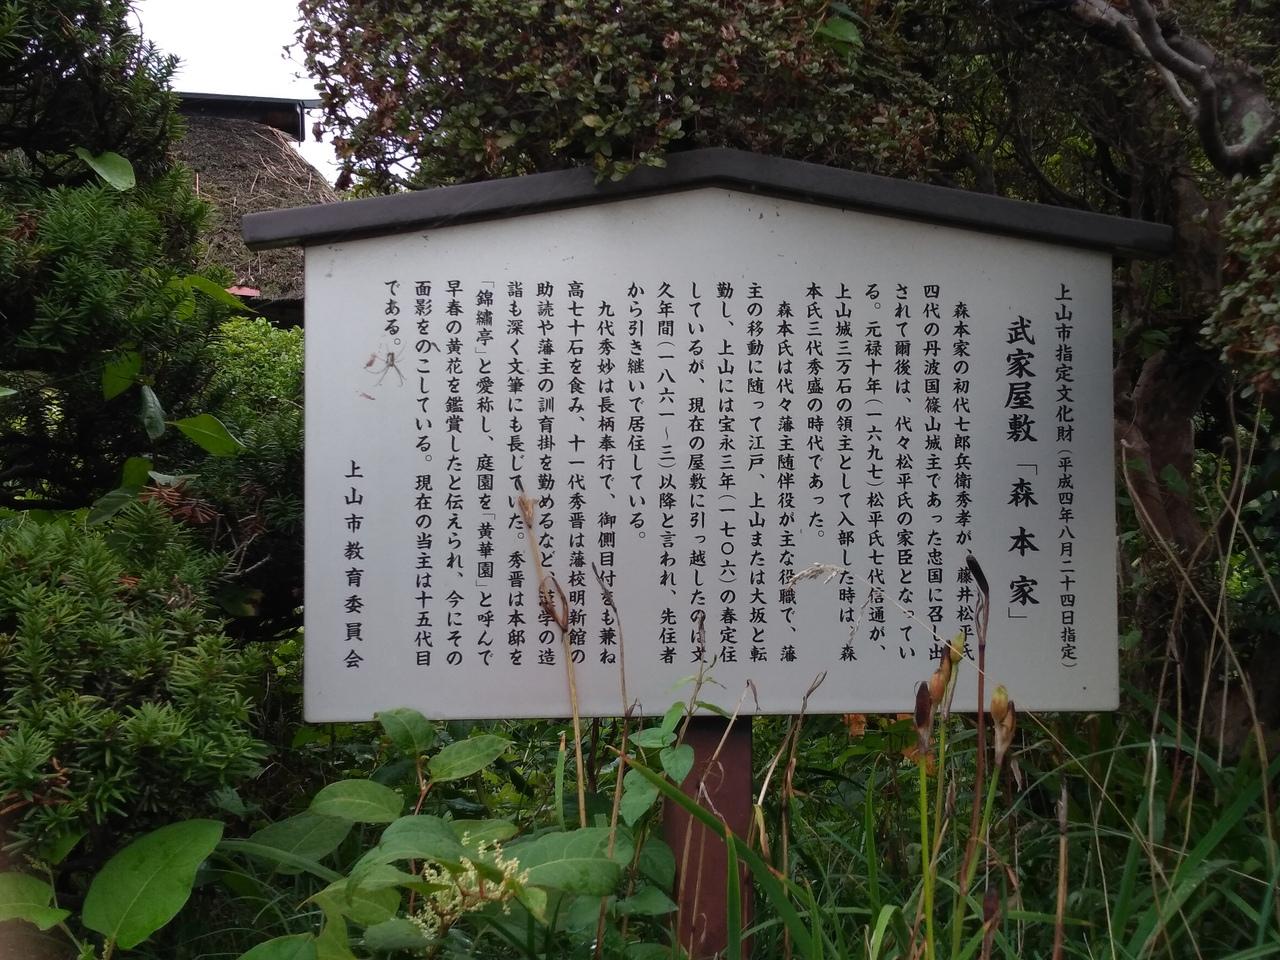 上山市指定文化財(平成四年八月二十四日指定)
武家屋敷「森本家」
森本家の初代七郎兵衛秀孝が、藤井松平氏
四代の丹波国篠山城主であった忠国に召し出
されて爾後は、代々松平氏の家臣となってい
る。元禄十年(一六九七)松平氏七代信通が、
上山城三万石の領主として入部した時は、森
本氏三代秀盛の時代であった。
森本氏は代々藩主随伴役が主な役職で、藩
主の移動に随って江戸、上山または大坂と転
勤し、上山には宝永三年(一七〇六)の春定住
しているが、現在の屋敷に引っ越したのは文
久年間(一八六一~三)以降と言われ、先住者
から引き継いで居住している。
九代秀妙は長柄奉行で、御側目付をも兼ね
高七十石を食み、十一代秀晋は藩校明新館の
助読や藩主の訓育掛を勤めるなど、漢学の造
詣も深く文筆にも長じていた。秀晋は本邸を
「錦繡亭」と愛称し、庭園を「黄華園」と呼んで
早春の黄花を鑑賞したと伝えられ、今にその
面影をのこしている。現在の当主は十五代目
である。
上山市教育委員会